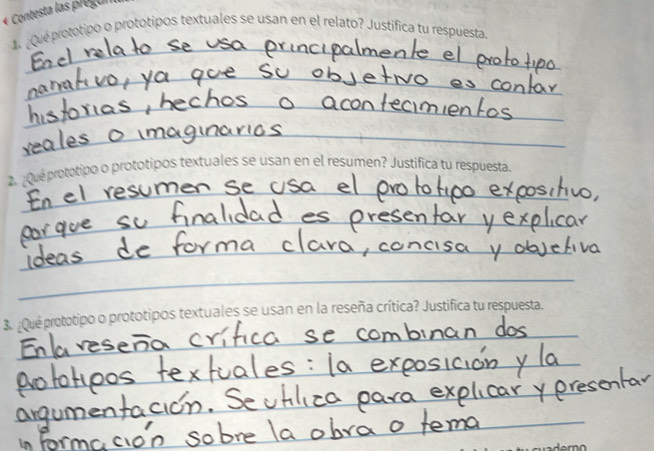 4 Contesta las pregun
1. ¿Qué prototipo o prototipos textuales se usan en el relato? Justifica tu respuesta.
En el relato se usa principalmente el prototipo
narrativo, ya que su objetivo es contar
historias, hechos o acontecimientos
reales o imaginarios
2. ¿Qué prototipo o prototipos textuales se usan en el resumen? Justifica tu respuesta.
En el resumen se usa el prototipo expositivo,
porque su finalidad es presentar y explicar
ideas de forma clara, concisa y objetiva
3. ¿Qué prototipo o prototipos textuales se usan en la reseña crítica? Justifica tu respuesta.
En la reseña crítica se combinan dos
prototipos textuales: la exposición y la
argumentación. Se utiliza para explicar y presentar
información sobre la obra o tema
cuaderno